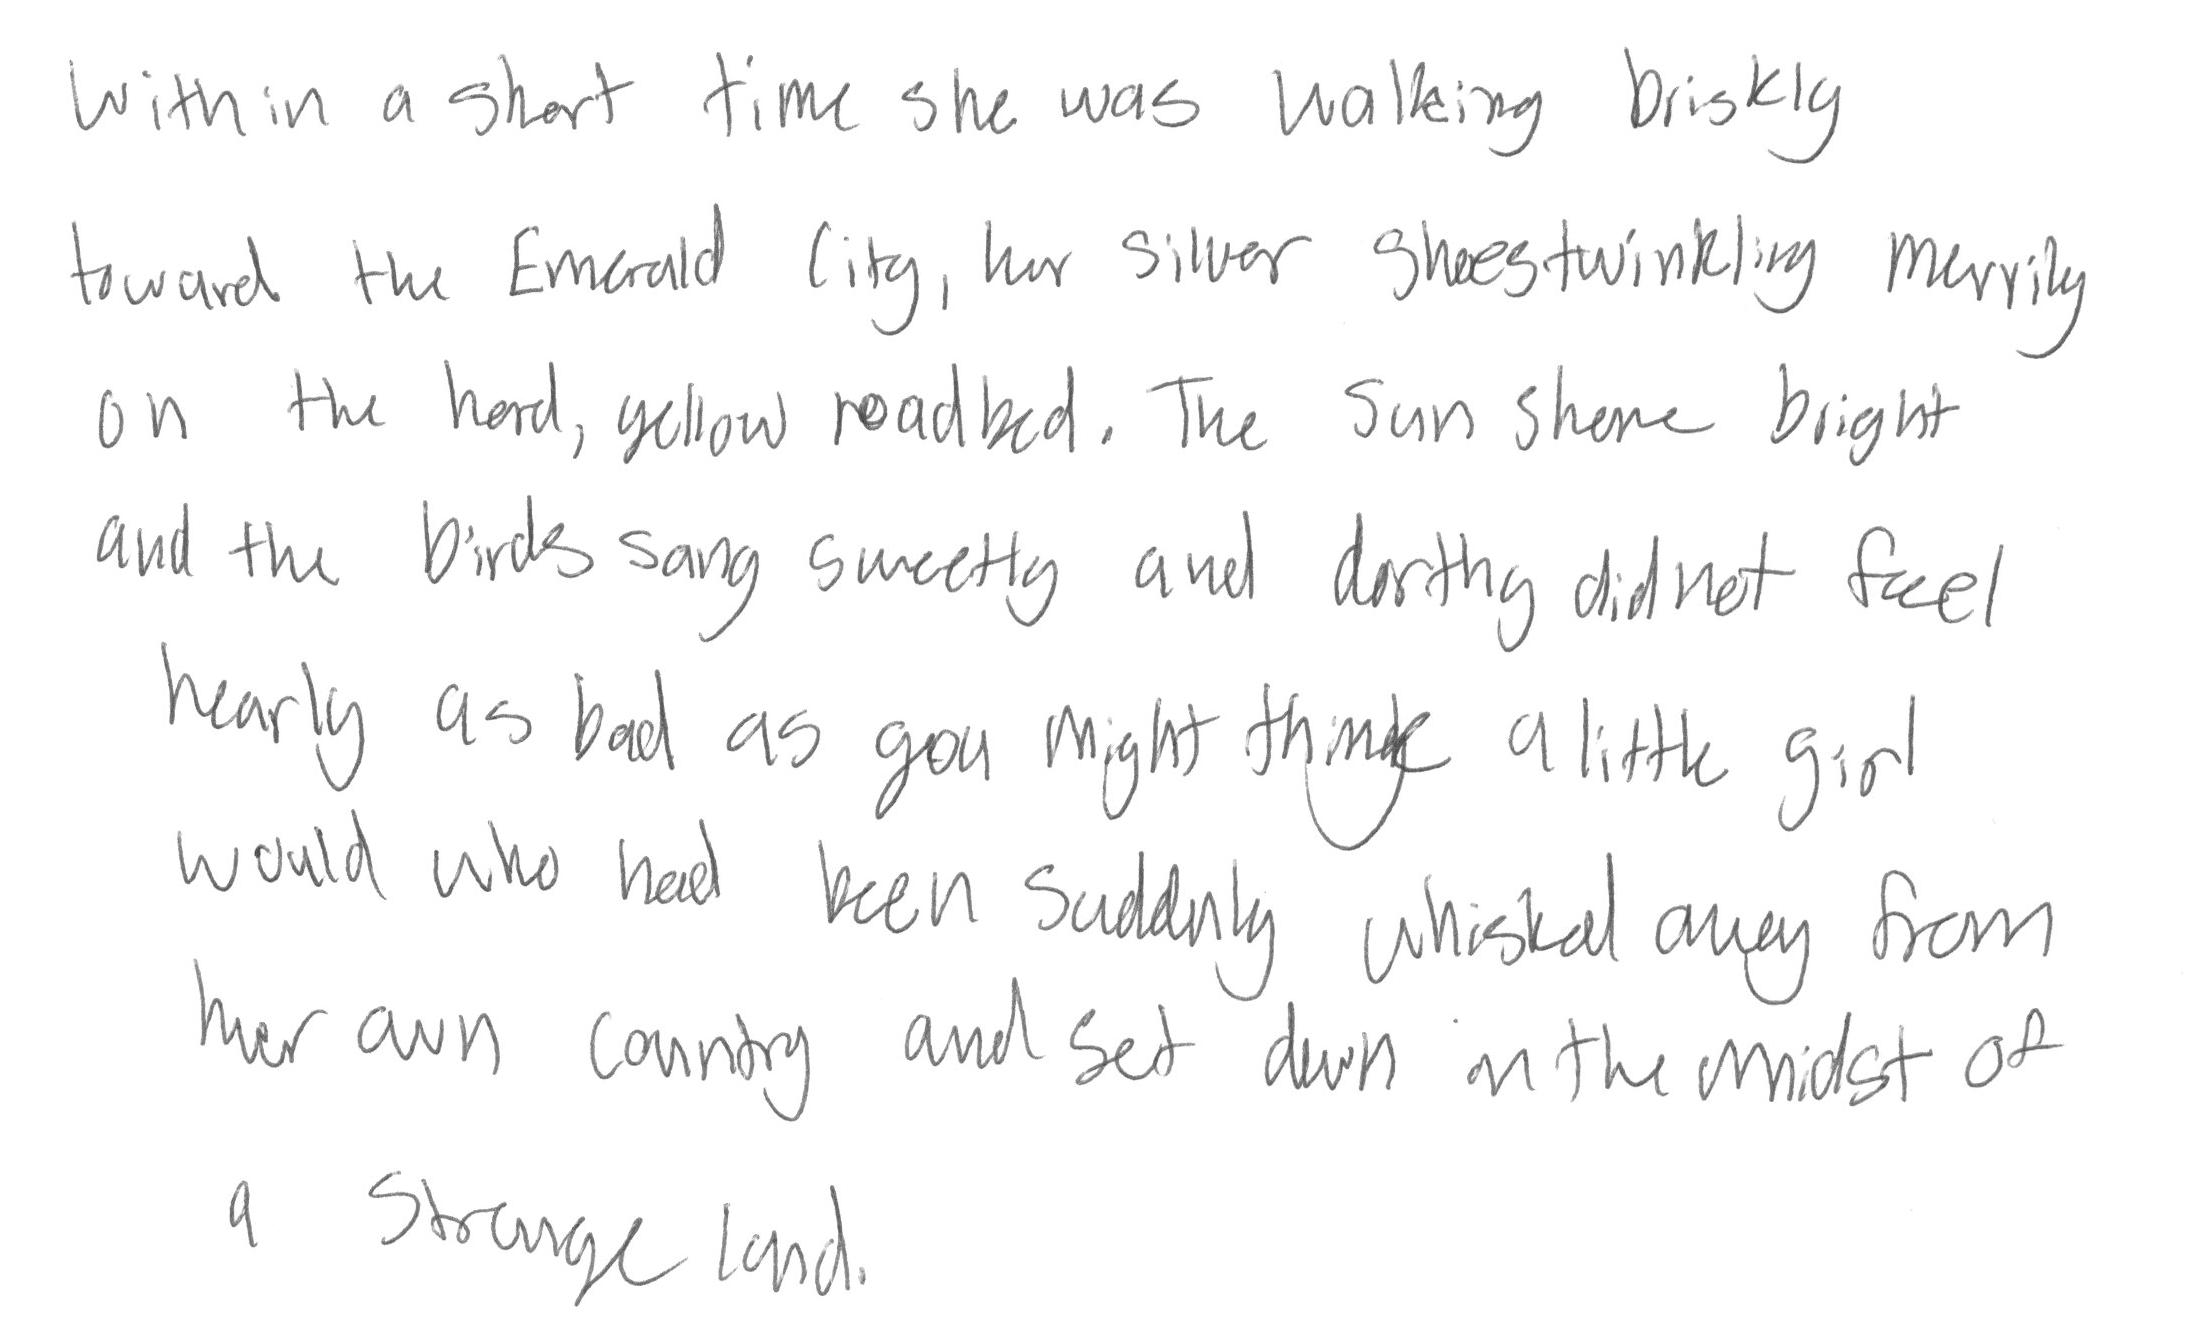 Within a short time she was walking briskly
toward the Emerald City, her silver shoes twinkling merrily
on the hard, yellow roadbed. The sun shone bright
and the birds sang sweetly and dorthy did not feel
nearly as bad as you might think a little girl
would who had been suddenly whisked away from
her own country and set down in the midst of
a strange land.